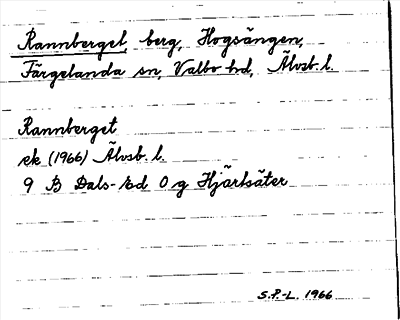 Rannberget, berg, Hogsängen,
Färgelanda sn, Valbo hd, Älvsb. l.
Rannberget
ek (1966) Älvsb. l.
9 B Dals-Ed O g Hjärtsäter
S.P.-L. 1966